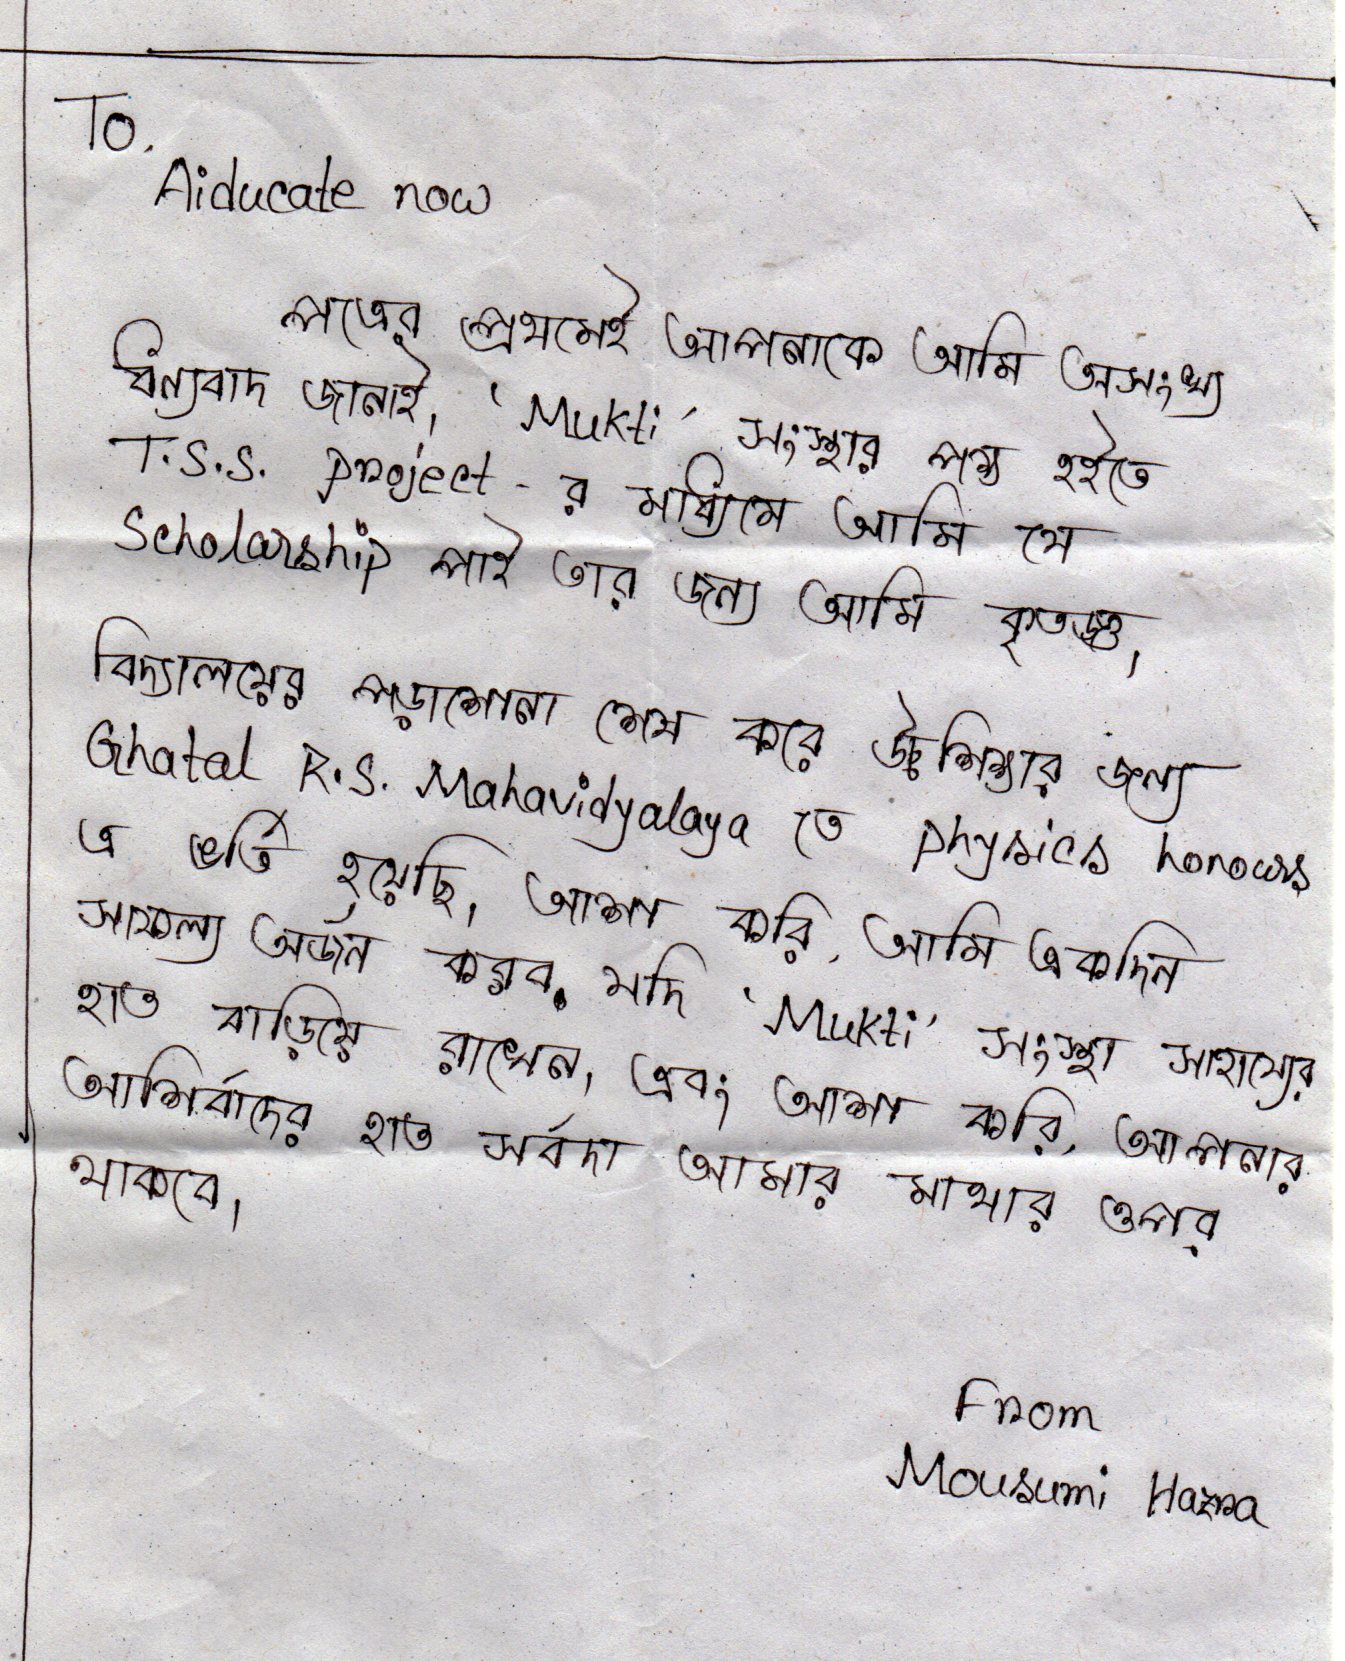 To,
Aiducate now
পত্রের প্রথমেই আপনাকে আমি অসংখ্য
ধন্যবাদ জানাই। 'Mukti' সংস্থার পক্ষ হইতে
T.S.S. project - র মাধ্যমে আমি যে
Scholarship পাই তার জন্য আমি কৃতজ্ঞ।
বিদ্যালয়ের পড়াশোনা শেষ করে উচ্চশিক্ষার জন্য
Ghatal R.S. Mahavidyalaya তে physics honours
এ ভর্তি হয়েছি। আশা করি, আমি একদিন
সাফল্য অর্জন করব, যদি 'Mukti' সংস্থা সাহায্যের
হাত বাড়িয়ে রাখেন। এবং আশা করি, আপনার
আশির্বাদের হাত সর্বদা আমার মাথার ওপর
থাকবে।
From
Mousumi Hazra